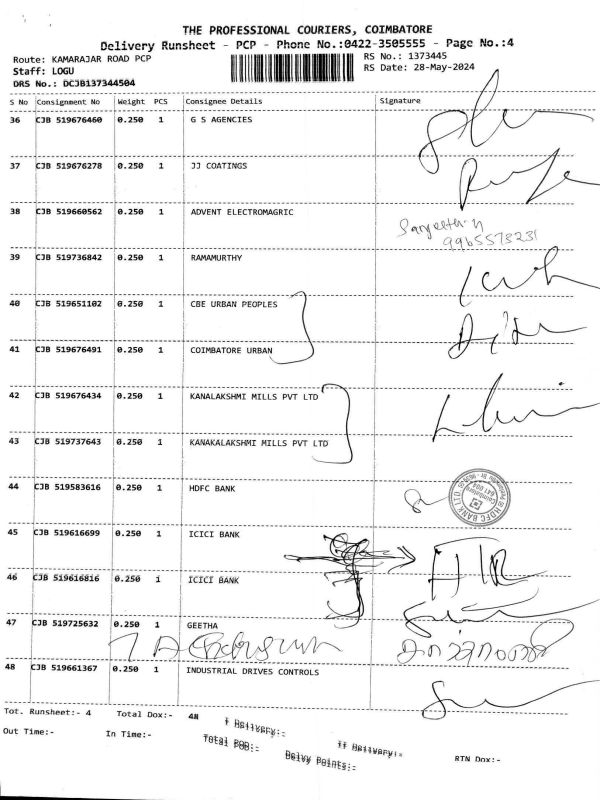 THE PROFESSIONAL COURIERS, COIMBATORE
Delivery Runsheet - PCP - Phone No.:0422-3505555 - Page No.:4
Route: KAMARAJAR ROAD PCP
RS No.: 1373445
Staff: LOGU
RS Date: 28-May-2024
DRS No.: DCJB137344504
S No Consignment No Weight PCS Consignee Details Signature
36 CJB 519676460 0.250 1 G S AGENCIES
37 CJB 519676278 0.250 1 JJ COATINGS
38 CJB 519660562 0.250 1 ADVENT ELECTROMAGRIC
9965573231
39 CJB 519736842 0.250 1 RAMAMURTHY
40 CJB 519651102 0.250 1 CBE URBAN PEOPLES
41 CJB 519676491 0.250 1 COIMBATORE URBAN
42 CJB 519676434 0.250 1 KANALAKSHMI MILLS PVT LTD
43 CJB 519737643 0.250 1 KANAKALAKSHMI MILLS PVT LTD
44 CJB 519583616 0.250 1 HDFC BANK
HDFC BANK LTD
Coimbatore
45 CJB 519616699 0.250 1 ICICI BANK
46 CJB 519616816 0.250 1 ICICI BANK
47 CJB 519725632 0.250 1 GEETHA
48 CJB 519661367 0.250 1 INDUSTRIAL DRIVES CONTROLS
Tot. Runsheet:- 4 Total Dox:- 48 I Delivery:- II Delivery:- RTN Dox:-
Out Time:- In Time:- Total POD:- Delvy Points:-